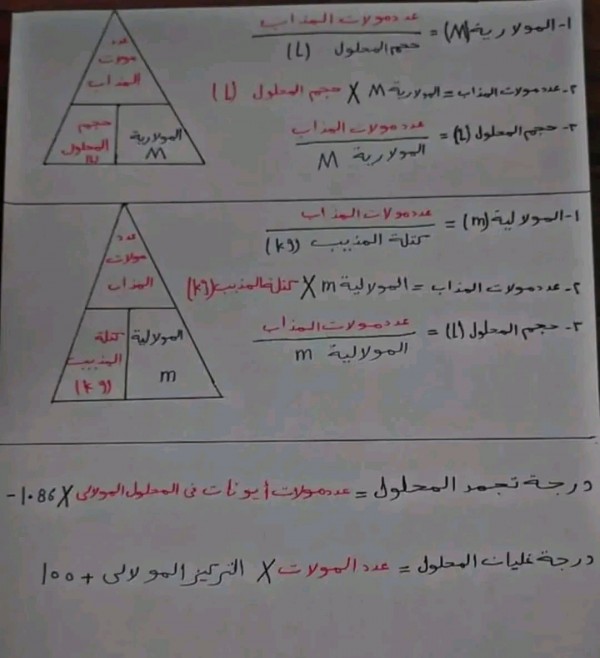 ١- المولارية (M) = عدد مولات المذاب / حجم المحلول (L)
٢- عدد مولات المذاب = المولارية M X حجم المحلول (L)
٣- حجم المحلول (L) = عدد مولات المذاب / المولارية M
عدد
مولات
المذاب
المولارية
M
حجم
المحلول
(L)
١- المولالية (m) = عدد مولات المذاب / كتلة المذيب (kg)
٢- عدد مولات المذاب = المولالية m X كتلة المذيب (kg)
٣- حجم المحلول (L) = عدد مولات المذاب / المولالية m
عدد
مولات
المذاب
المولالية
m
كتلة
المذيب
(kg)
درجة تجمد المحلول = عدد مولات أيونات فى المحلول المولالى X 1.86-
درجة غليان المحلول = عدد المولات X التركيز المولالى + ١٠٠